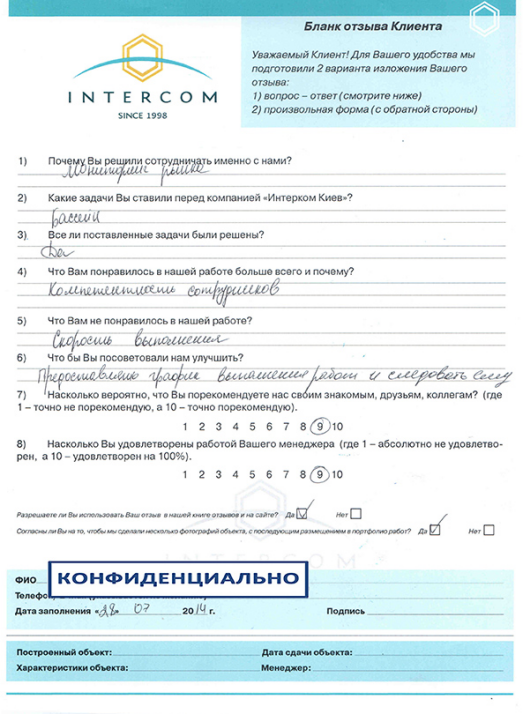 INTERCOM
SINCE 1998
Бланк отзыва Клиента
Уважаемый Клиент! Для Вашего удобства мы
подготовили 2 варианта изложения Вашего
отзыва:
1) вопрос – ответ (смотрите ниже)
2) произвольная форма (с обратной стороны)
1) Почему Вы решили сотрудничать именно с нами?
Мониторинг рынка
2) Какие задачи Вы ставили перед компанией «Интерком Киев»?
Бассейн
3) Все ли поставленные задачи были решены?
Да
4) Что Вам понравилось в нашей работе больше всего и почему?
Компетентность сотрудников
5) Что Вам не понравилось в нашей работе?
Скорость выполнения
6) Что бы Вы посоветовали нам улучшить?
график выполнения работ и следовать ему
7) Насколько вероятно, что Вы порекомендуете нас своим знакомым, друзьям, коллегам? (где
1 – точно не порекомендую, а 10 – точно порекомендую).
1 2 3 4 5 6 7 8 9 10
8) Насколько Вы удовлетворены работой Вашего менеджера (где 1 – абсолютно не удовлетво-
рен, а 10 – удовлетворен на 100%).
1 2 3 4 5 6 7 8 9 10
Разрешаете ли Вы использовать Ваш отзыв в нашей книге отзывов и на сайте? Да Нет
Согласны ли Вы на то, чтобы мы сделали несколько фотографий объекта, с последующим размещением в портфолио работ? Да Нет
INTERCOM
ФИО КОНФИДЕНЦИАЛЬНО
Дата заполнения «28» 07 2014 г. Подпись
Построенный объект: Дата сдачи объекта:
Характеристики объекта: Менеджер: